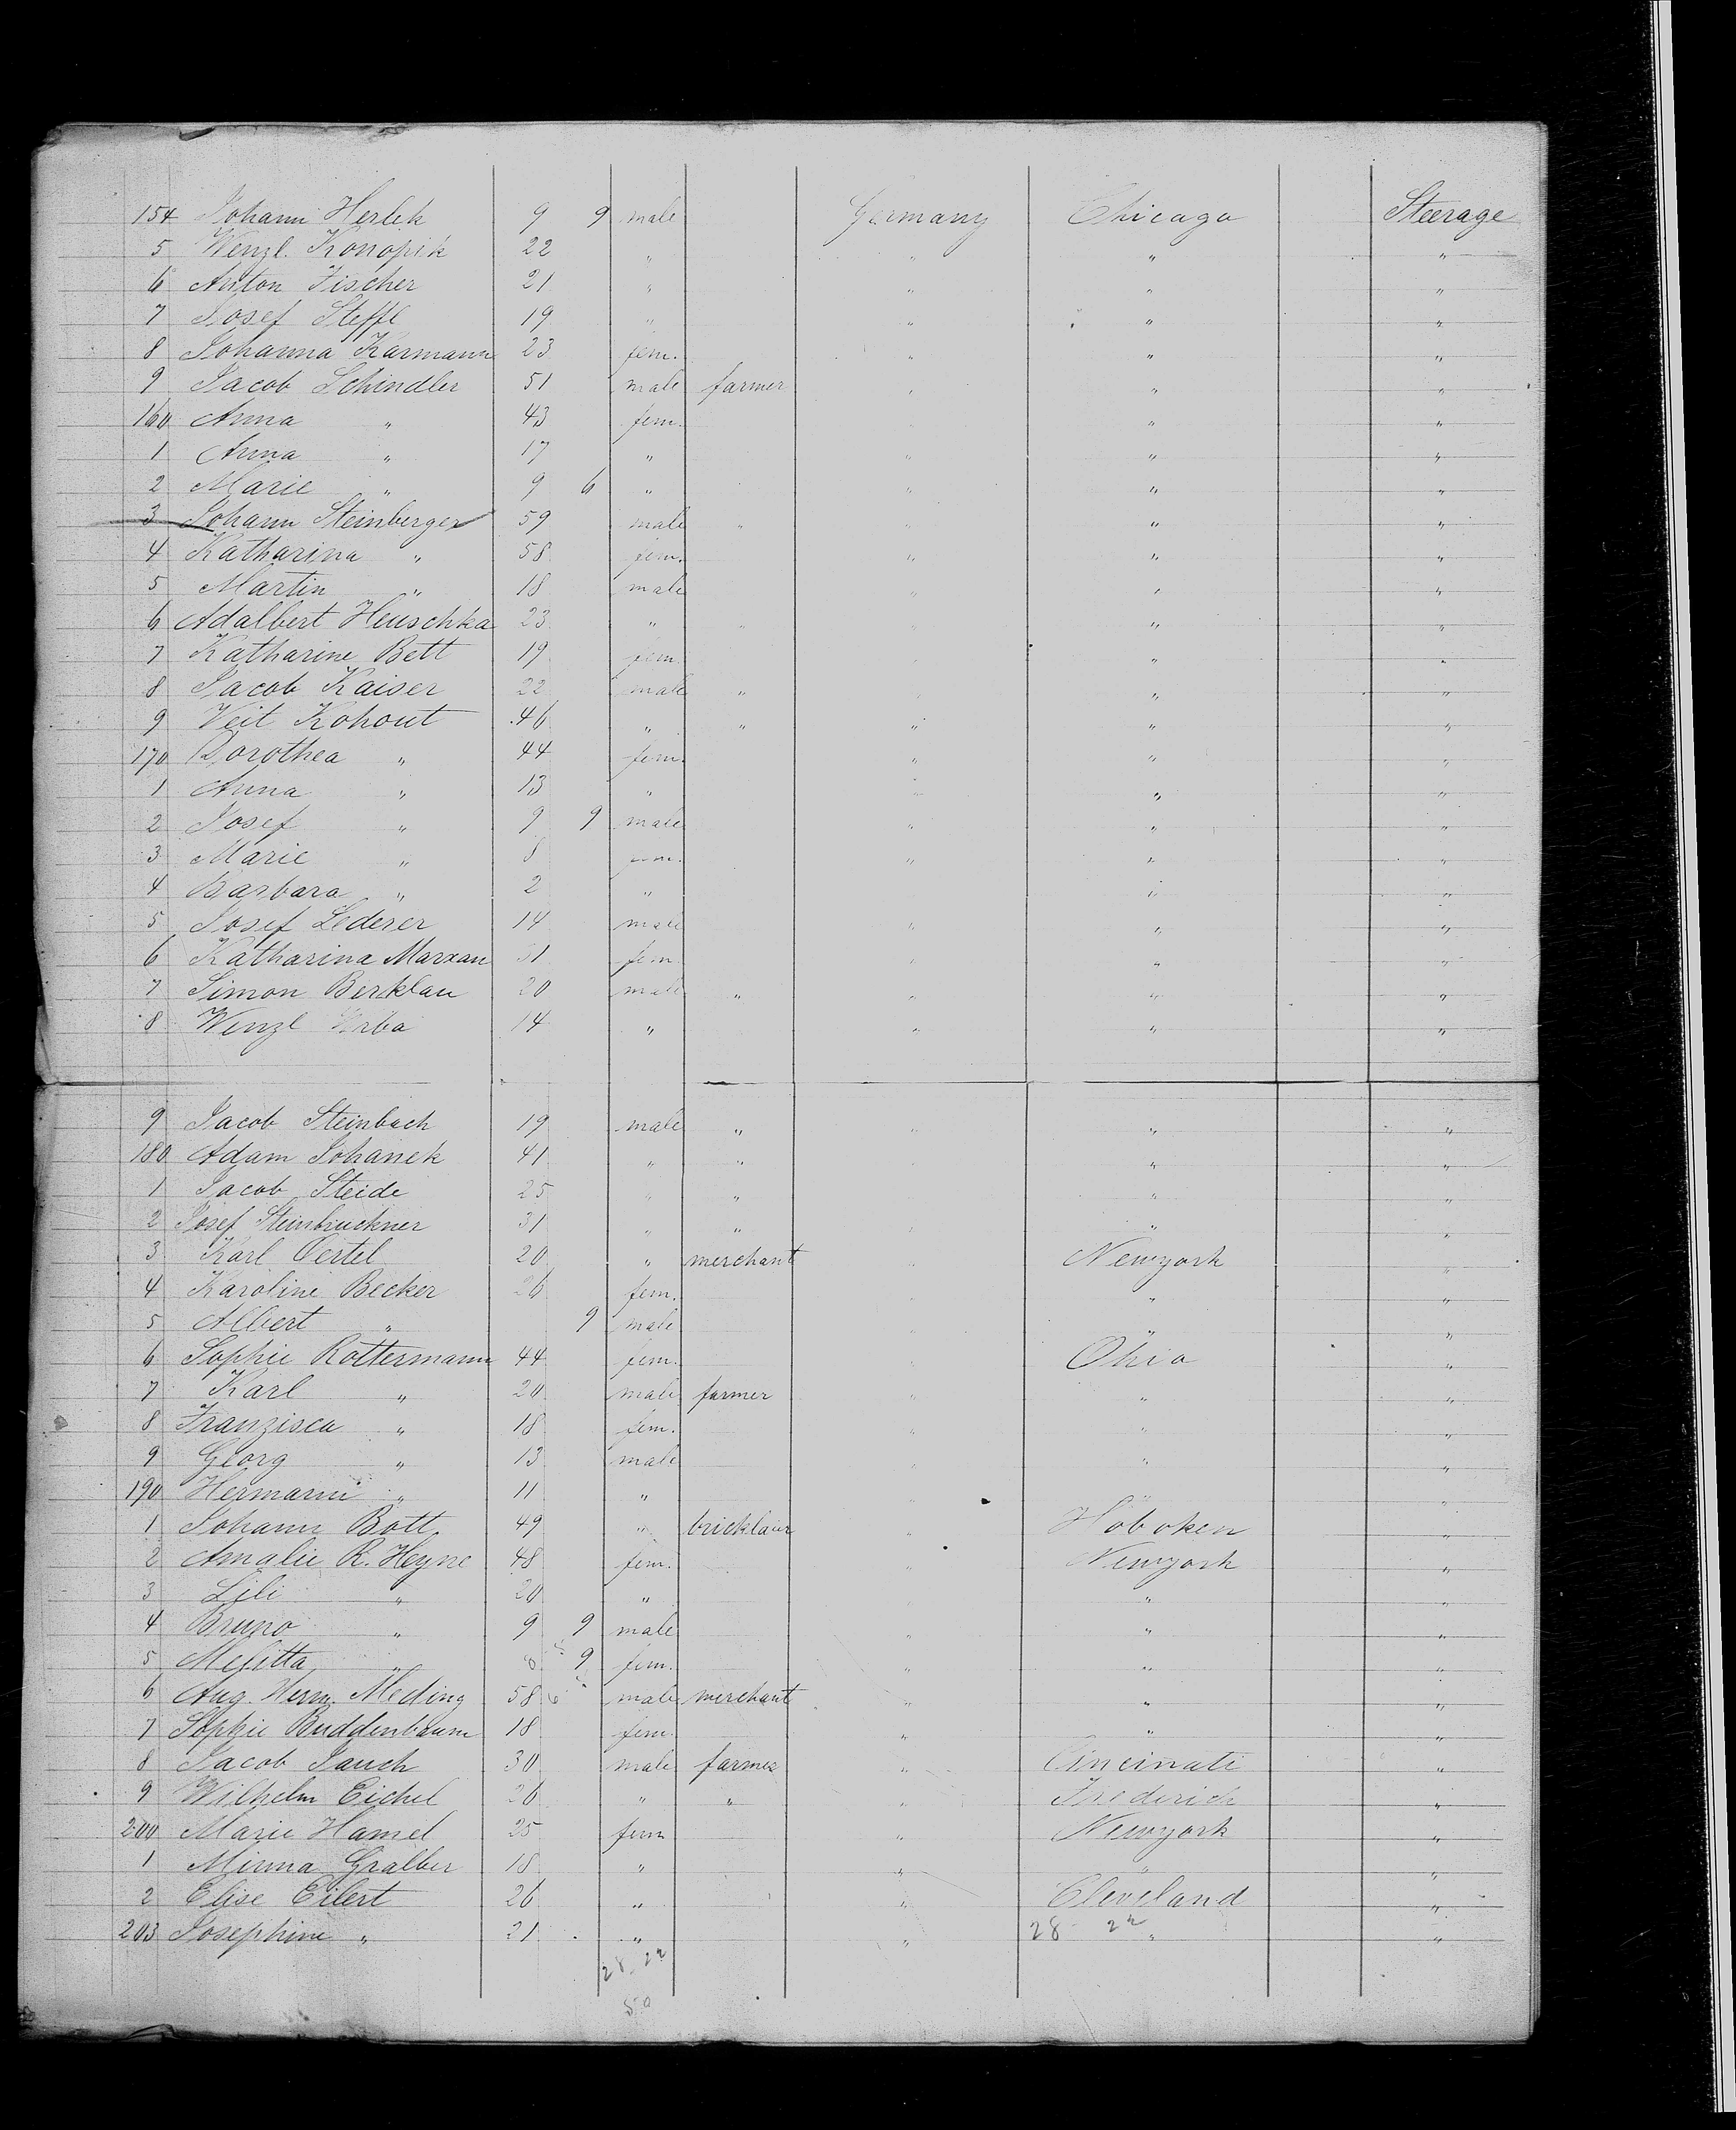 154 Johann Herlek 9 9 male Germany Chicago Steerage
5 Wenzl. Konopik 22 " " " "
6 Anton Fischer 21 " " " "
7 Josef Steffl 19 " " " "
8 Johanna Karmann 23 fem. " " "
9 Jacob Schindler 51 male farmer " " "
160 Anna " 43 fem. " "
1 Anna " 17 " " " "
2 Marie " 9 6 " " " "
3 Johann Steinberger 59 male " " "
4 Katharina " 58 fem. " " "
5 Martin " 18 male " " "
6 Adalbert Heuschka 23 " " " "
7 Katharine Bett 19 fem. " " "
8 Jacob Kaiser 22 male " " " "
9 Veit Kohout 46 " " " " "
170 Dorothea " 44 fem. " " "
1 Anna " 13 " " " "
2 Josef " 9 9 male " " "
3 Marie " 8 fem. " " "
4 Barbara " 2 " " "
5 Josef Lederer 14 male " " "
6 Katharina Marxan 31 fem " " "
7 Simon Berklau 20 male " " " "
8 Wenzl Wrba 14 " " " "
9 Jacob Steinbach 19 male " " " "
180 Adam Johanek 41 " " " " "
1 Jacob Steide 25 " " " "
2 Josef Steinbruckner 31 " " " " "
3 Karl Oertel 20 " merchant " Newyork "
4 Karoline Becker 26 fem. " " "
5 Albert " 9 male " " "
6 Sophie Rottermann 44 fem. " Ohio "
7 Karl " 20 male farmer " " "
8 Franzisca " 18 fem. " " "
9 Georg " 13 male " " "
190 Hermann " 11 " " " "
1 Johann Bott 49 " bricklaier " Hoboken "
2 Amalie R. Heyne 48 fem. " Newyork "
3 Lili " 20 " " " "
4 Bruno " 9 9 male " " "
5 Melitta " 8 9 fem. " " "
6 Aug. Herm. Meding 58 6 male merchant " " "
7 Sophie Buddenbaum 18 fem. " " "
8 Jacob Jauch 30 male farmer " Cincinati "
9 Wilhelm Eichel 26 " " " Frederich "
200 Marie Hamel 25 fem " Newyork "
1 Minna Gralber 18 " " " "
2 Elise Eilert 26 " " Cleveland "
203 Josephine " 21 " " 28 22 " "
28 22
50